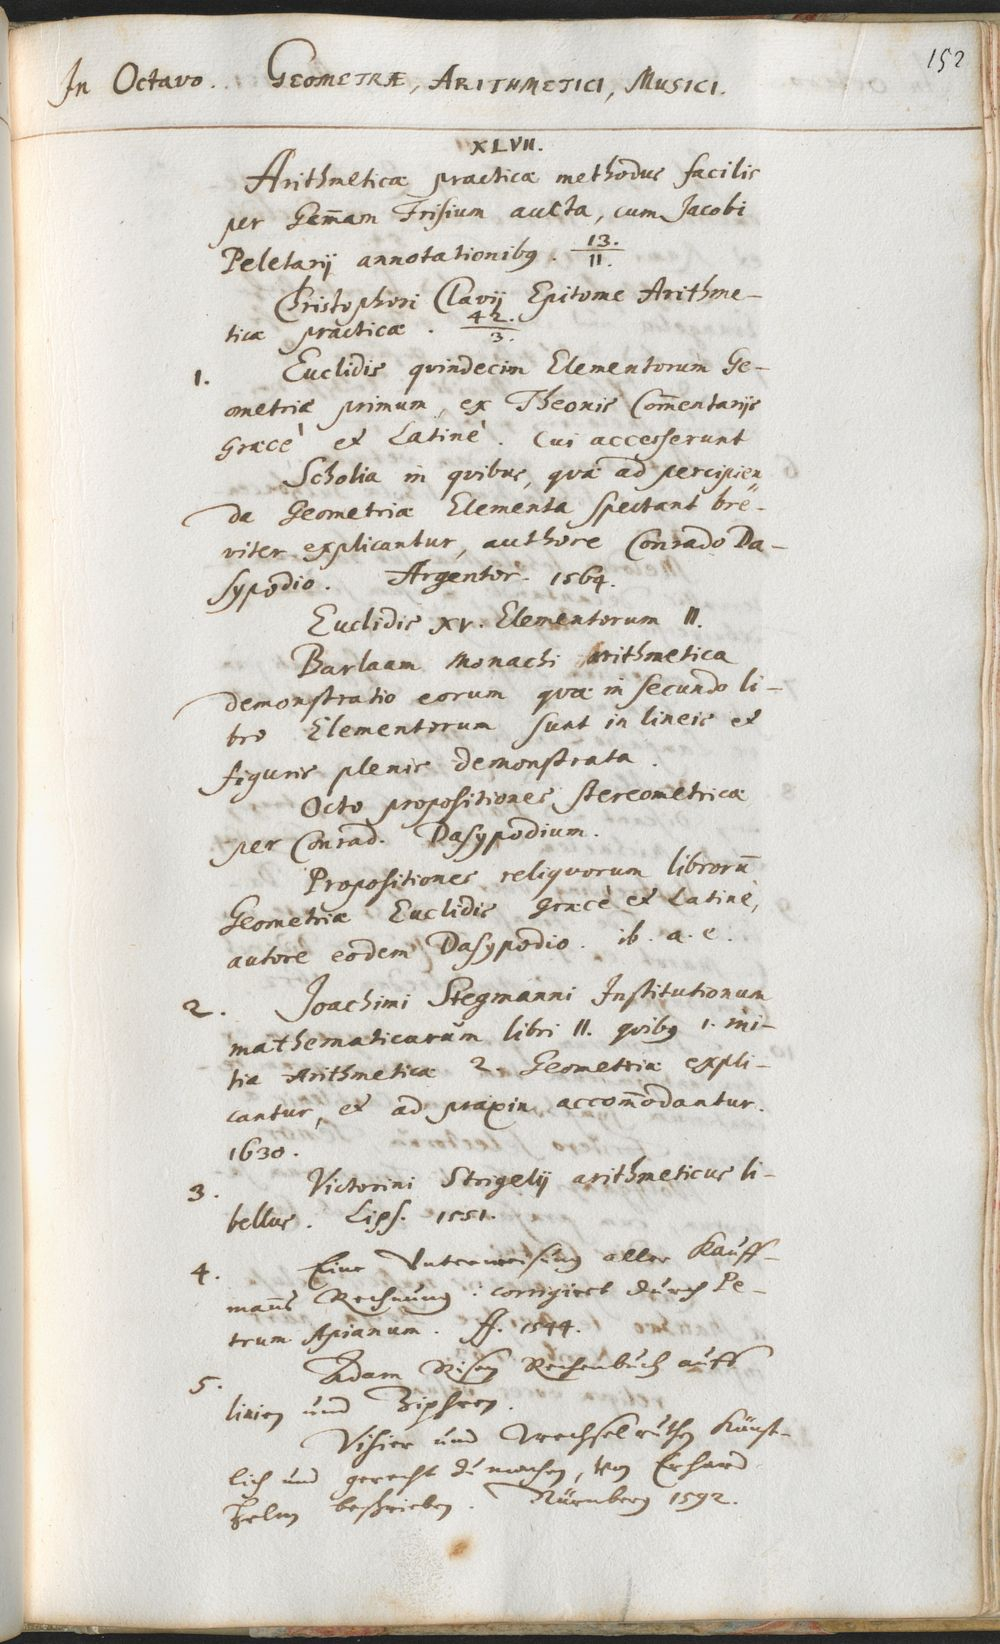 152
In Octavo. GEOMETRÆ, ARITHMETICI, MUSICI.
XLVII.
Arithmeticæ practicæ methodus facilis
per Gem̄am Frisium aucta, cum Jacobi
Peletarij annotationibꝯ. 13./11.
Christophori Clavij Epitome Arithme-
ticæ practicæ. 42./3.
1. Euclidis quindecim Elementorum Ge-
ometriæ primum, ex Theonis Com̄entarijs
Græcè et Latinè. Cui accesserunt
Scholia in quibus, quæ ad percipien
da Geometriæ Elementa spectant bre-
viter explicantur, authore Conrado Da-
sypodio. Argentor. 1564.
Euclidis xv. Elementorum II.
Barlaam Monachi arithmetica
demonstratio eorum quæ in secundo li-
bro Elementorum sunt in lineis et
figuris plenis demonstrata.
Octo propositiones stereometricæ
per Conrad. Dasypodium.
Propositiones reliquorum librorū
Geometriæ Euclidis græcè et Latinè,
autore eodem Dasypodio. ib. a. e.
2. Joachimi Stegmanni Institutionum
mathematicarum libri II. quibꝯ 1. ini-
tia Arithmeticæ 2. Geometriæ expli-
cantur, et ad praxin accom̄odantur.
1630.
3. Victorini Strigelij arithmeticus li-
bellus. Lips. 1551.
4. Eine Vnterweisung aller Kauff-
man̄s Rechnung: corrigirt durch Pe-
trum Apianum. ff. 1544.
5. Adam Risen Rechenbuch auff
linien und Ziphren.
Visier und Wechselruthen Künst-
lich und gerecht zu machen, von Erhard
Helm beschrieben. Nürnberg 1592.